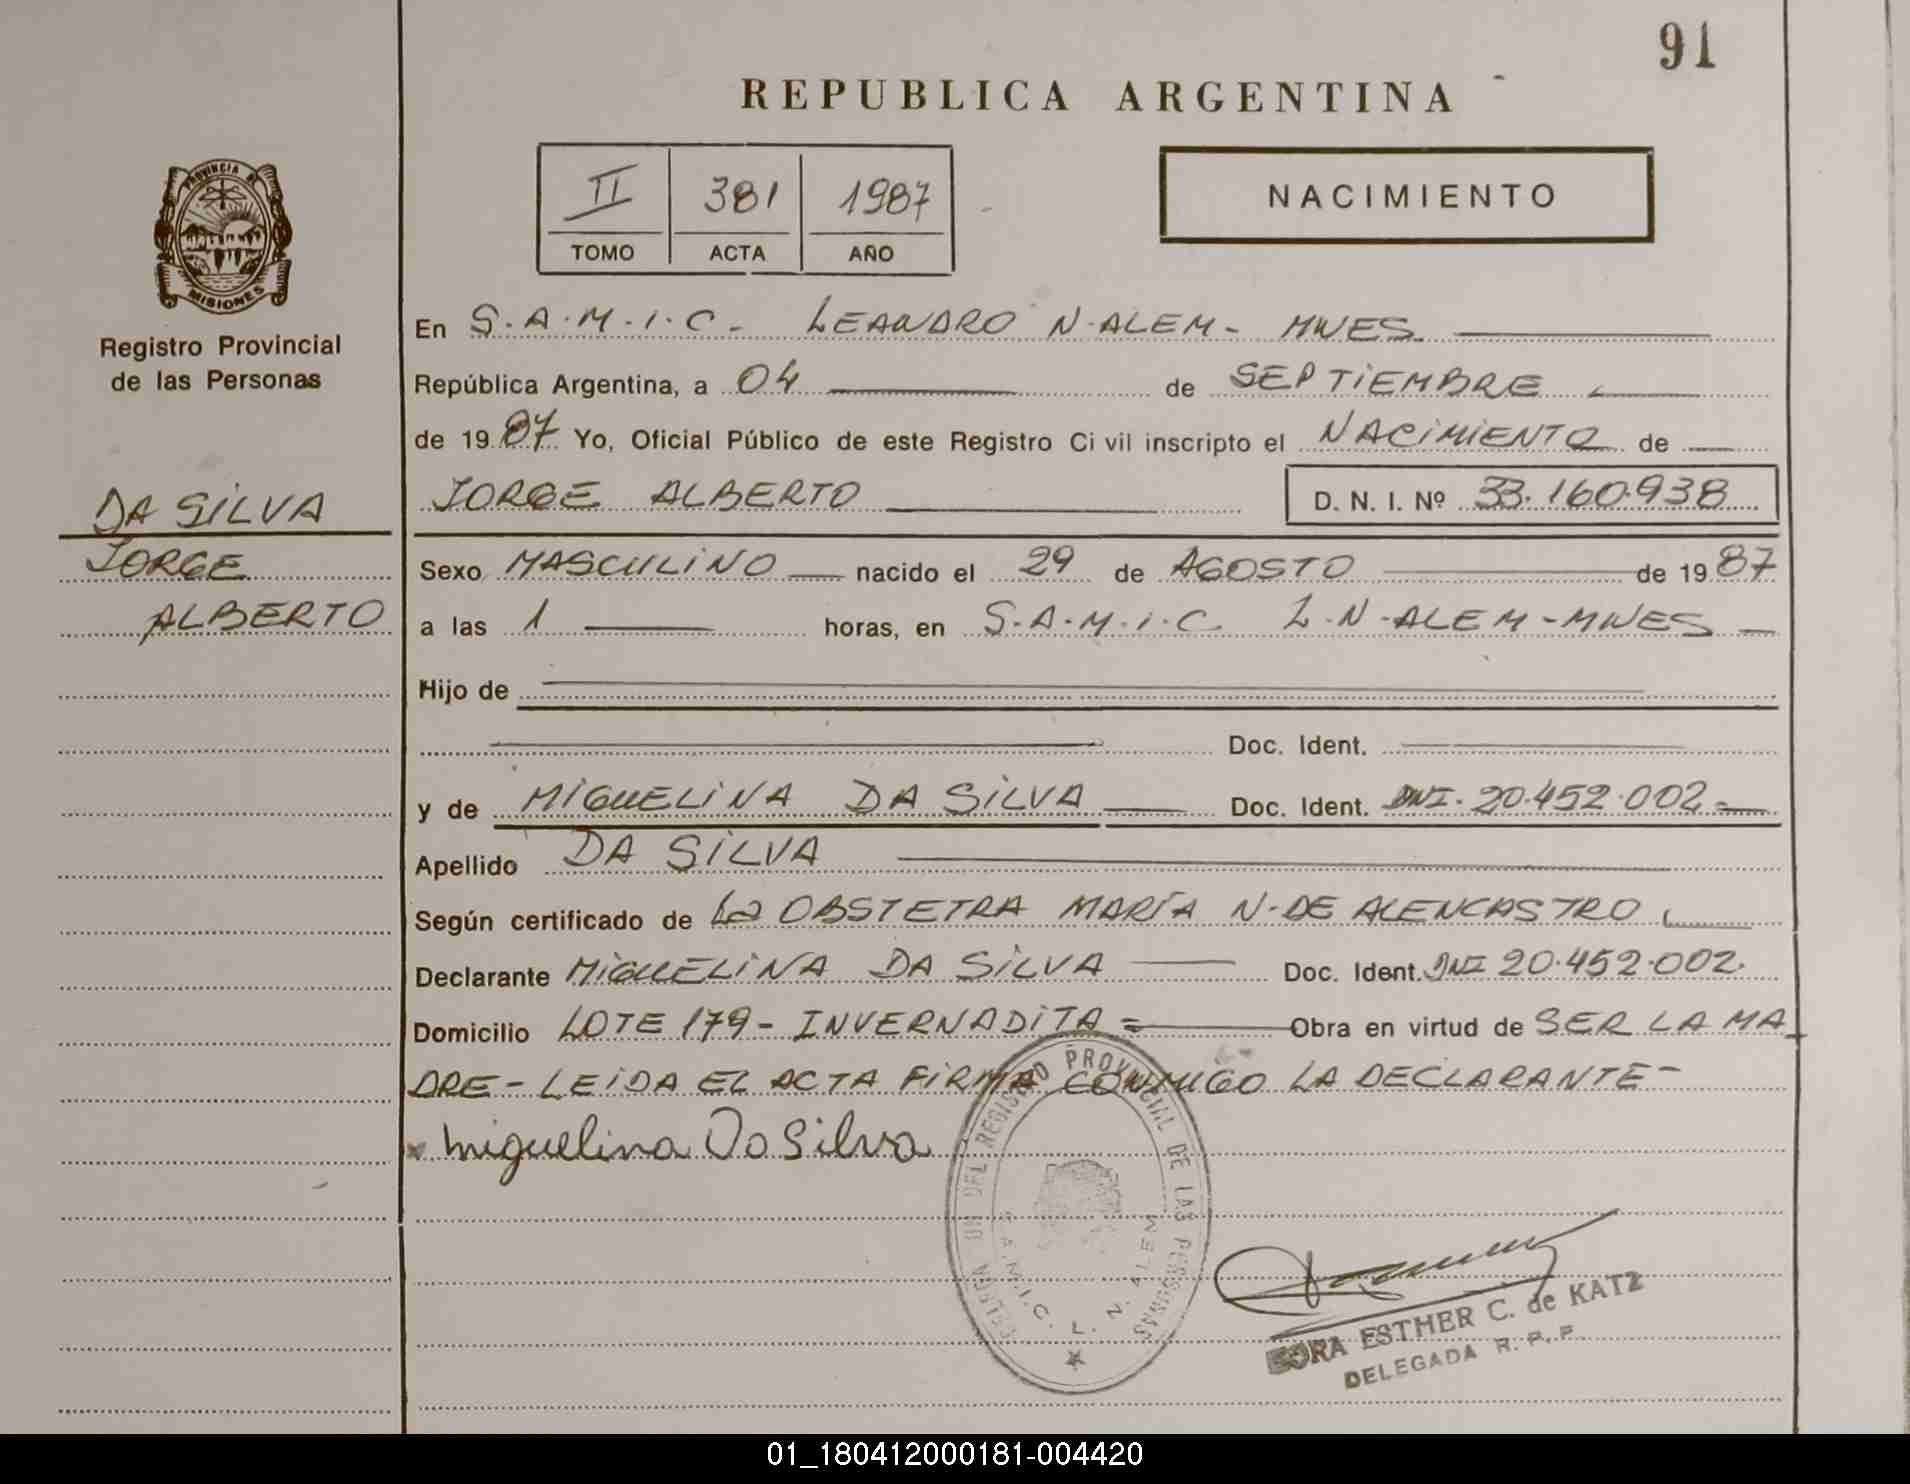 91
REPUBLICA ARGENTINA
II 381 1987
TOMO ACTA AÑO
NACIMIENTO
PROVINCIA DE
MISIONES
Registro Provincial
de las Personas
DA SILVA
JORGE
ALBERTO
En S.A.M.I.C. - LEANDRO N. ALEM - MNES.
República Argentina, a 04 de SEPTIEMBRE
de 1987 Yo, Oficial Público de este Registro Civil inscripto el NACIMIENTO de
JORGE ALBERTO D. N. I. Nº 33.160.938
Sexo MASCULINO nacido el 29 de AGOSTO de 1987
a las 1 horas, en S.A.M.I.C. L.N. ALEM - MNES
Hijo de
Doc. Ident.
y de MIGUELINA DA SILVA Doc. Ident. DNI. 20.452.002.
Apellido DA SILVA
Según certificado de La OBSTETRA MARÍA N. DE ALENCASTRO
Declarante MIGUELINA DA SILVA Doc. Ident. DNI 20.452.002.
Domicilio LOTE 179 - INVERNADITA = Obra en virtud de SER LA MA
DRE - LEIDA EL ACTA FIRMA CONMIGO LA DECLARANTE -
x miguelina Da Silva
DEL REGISTRO PROVINCIAL DE LAS PERSONAS
S.A.M.I.C. L. N. ALEM
ESTHER C. de KATZ
DELEGADA R. P. P.
01_180412000181-004420